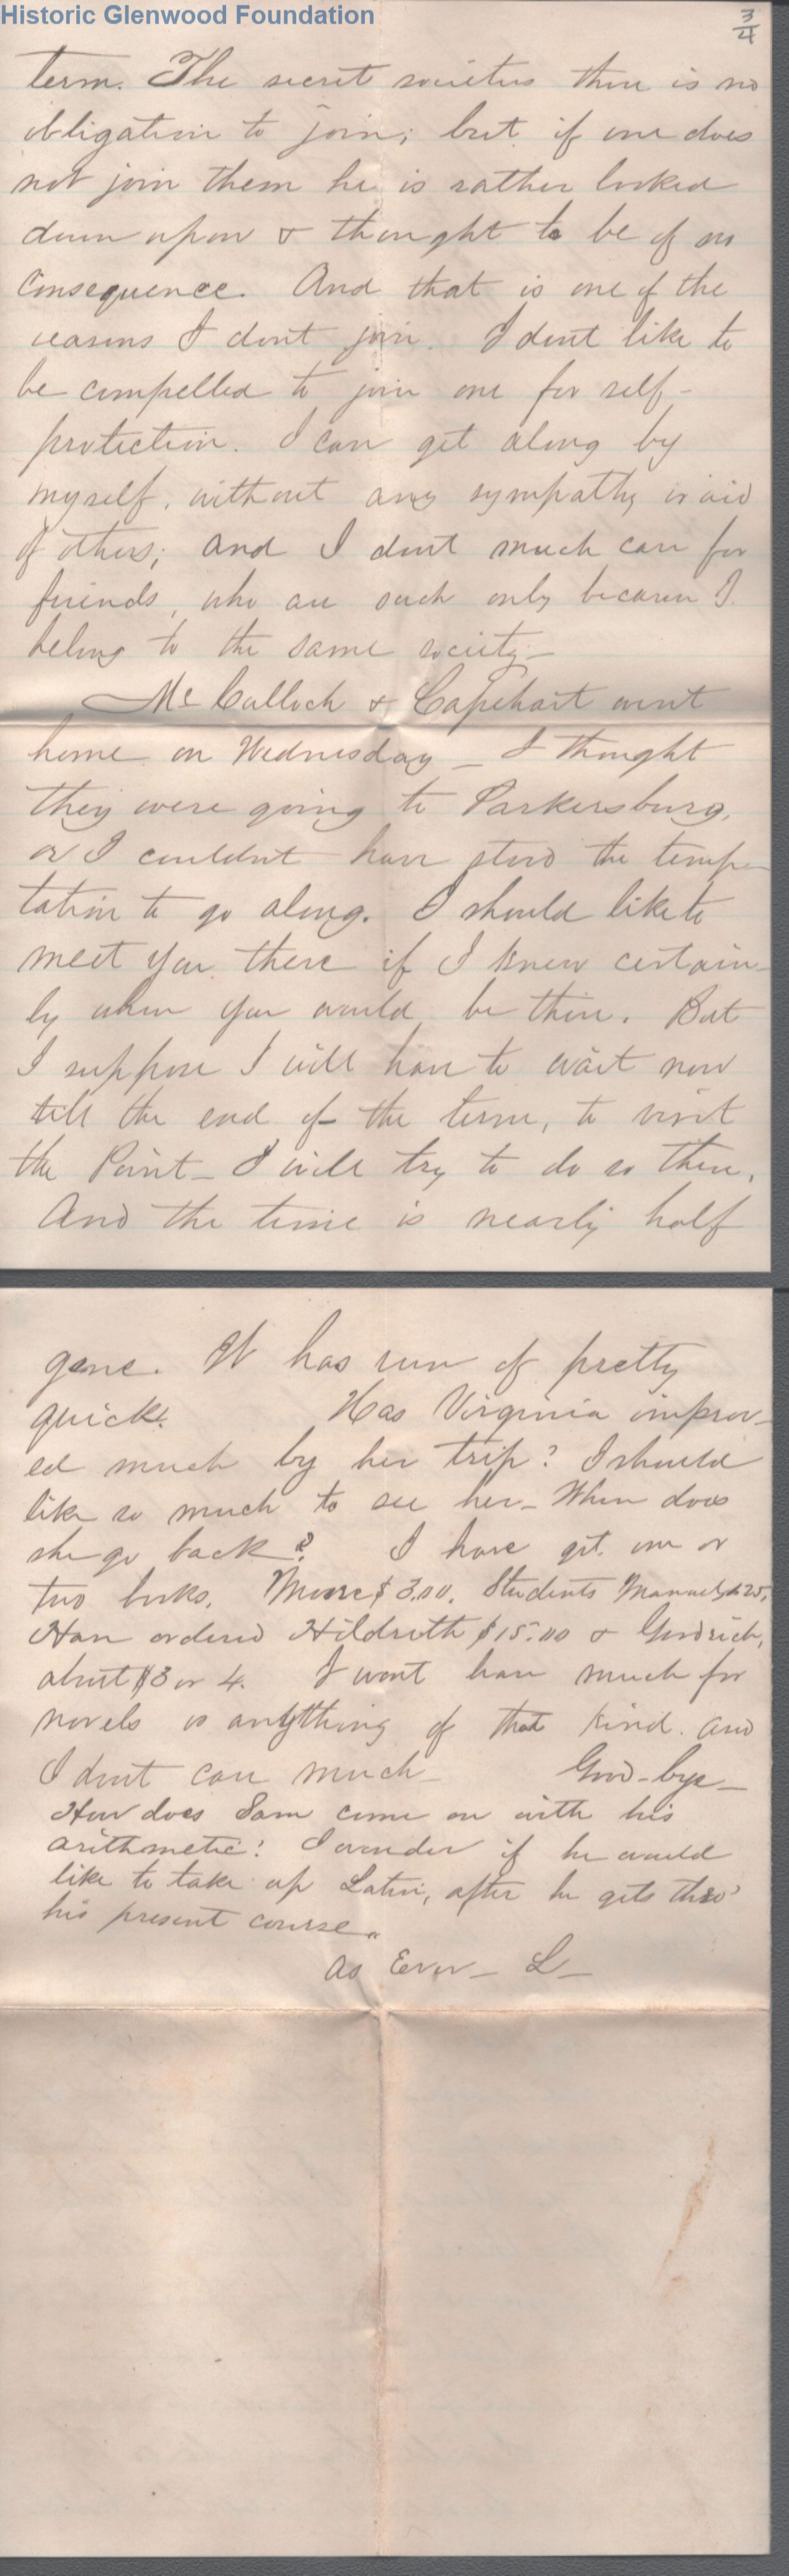 Historic Glenwood Foundation
3/4
term. The secret societies there is no
obligation to join; but if one does
not join them he is rather looked
down upon & thought to be of no
consequence. And that is one of the
reasons I dont join. I dont like to
be compelled to join one for self-
protection. I can get along by
myself, without any sympathy or aid
of others; and I dont much care for
friends, who are such only because I
belong to the same society—
McCulloch & Capehart went
home on Wednesday — I thought
they were going to Parkersburg,
or I couldnt have stood the temp-
tation to go along. I should like to
meet you there if I knew certain-
ly when you would be there. But
I suppose I will have to wait now
till the end of the term, to visit
the Point — I will try to do so then.
And the time is nearly half
gone. It has run of pretty
quick. Has Virginia improv-
ed much by her trip? I should
like so much to see her — When does
she go back? I have got one or
two books. Moore $3.00. Students Manual $.25,
Have ordered Hildreth $15.00 & Goodrich,
about $3 or 4. I wont have much for
novels or anything of that kind. and
I dont care much — Good-bye —
How does Sam come on with his
arithmetic? I wonder if he would
like to take up Latin, after he gets thro'
his present course.
As Ever — L —